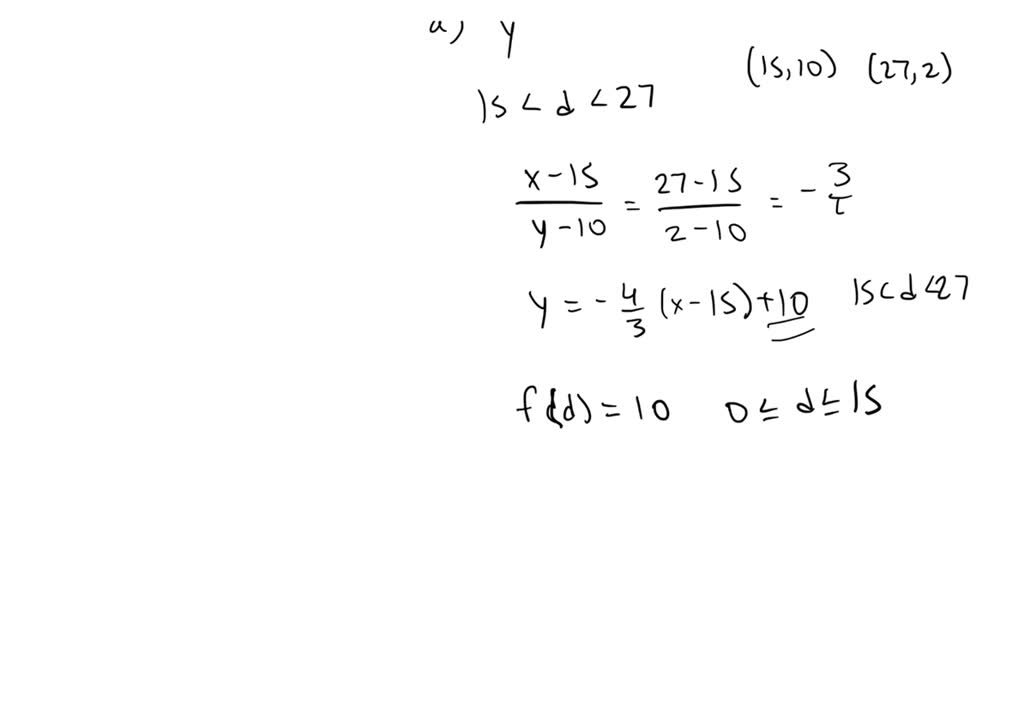 a) y
(15,10) (27,2)
15 < d < 27
x-15/y-10 = 27-15/2-10 = -3/2
y = -4/3 (x-15)+10 15<d<27
f(d) = 10 0 ≤ d ≤ 15